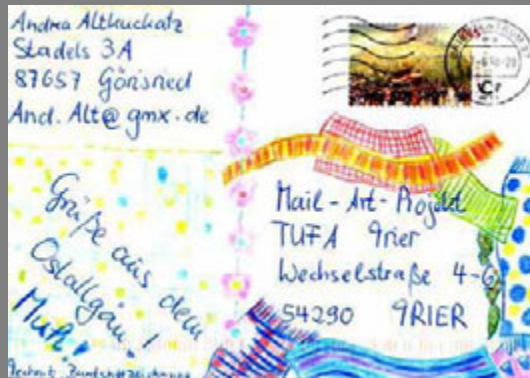 Andrea Altkuckatz
Stadels 3A
87657 Görisried
And. Alt@gmx.de
Grüße aus dem
Ostallgäu!
Mail-Art-Projekt
TUFA Trier
Wechselstraße 4-6
54290 TRIER